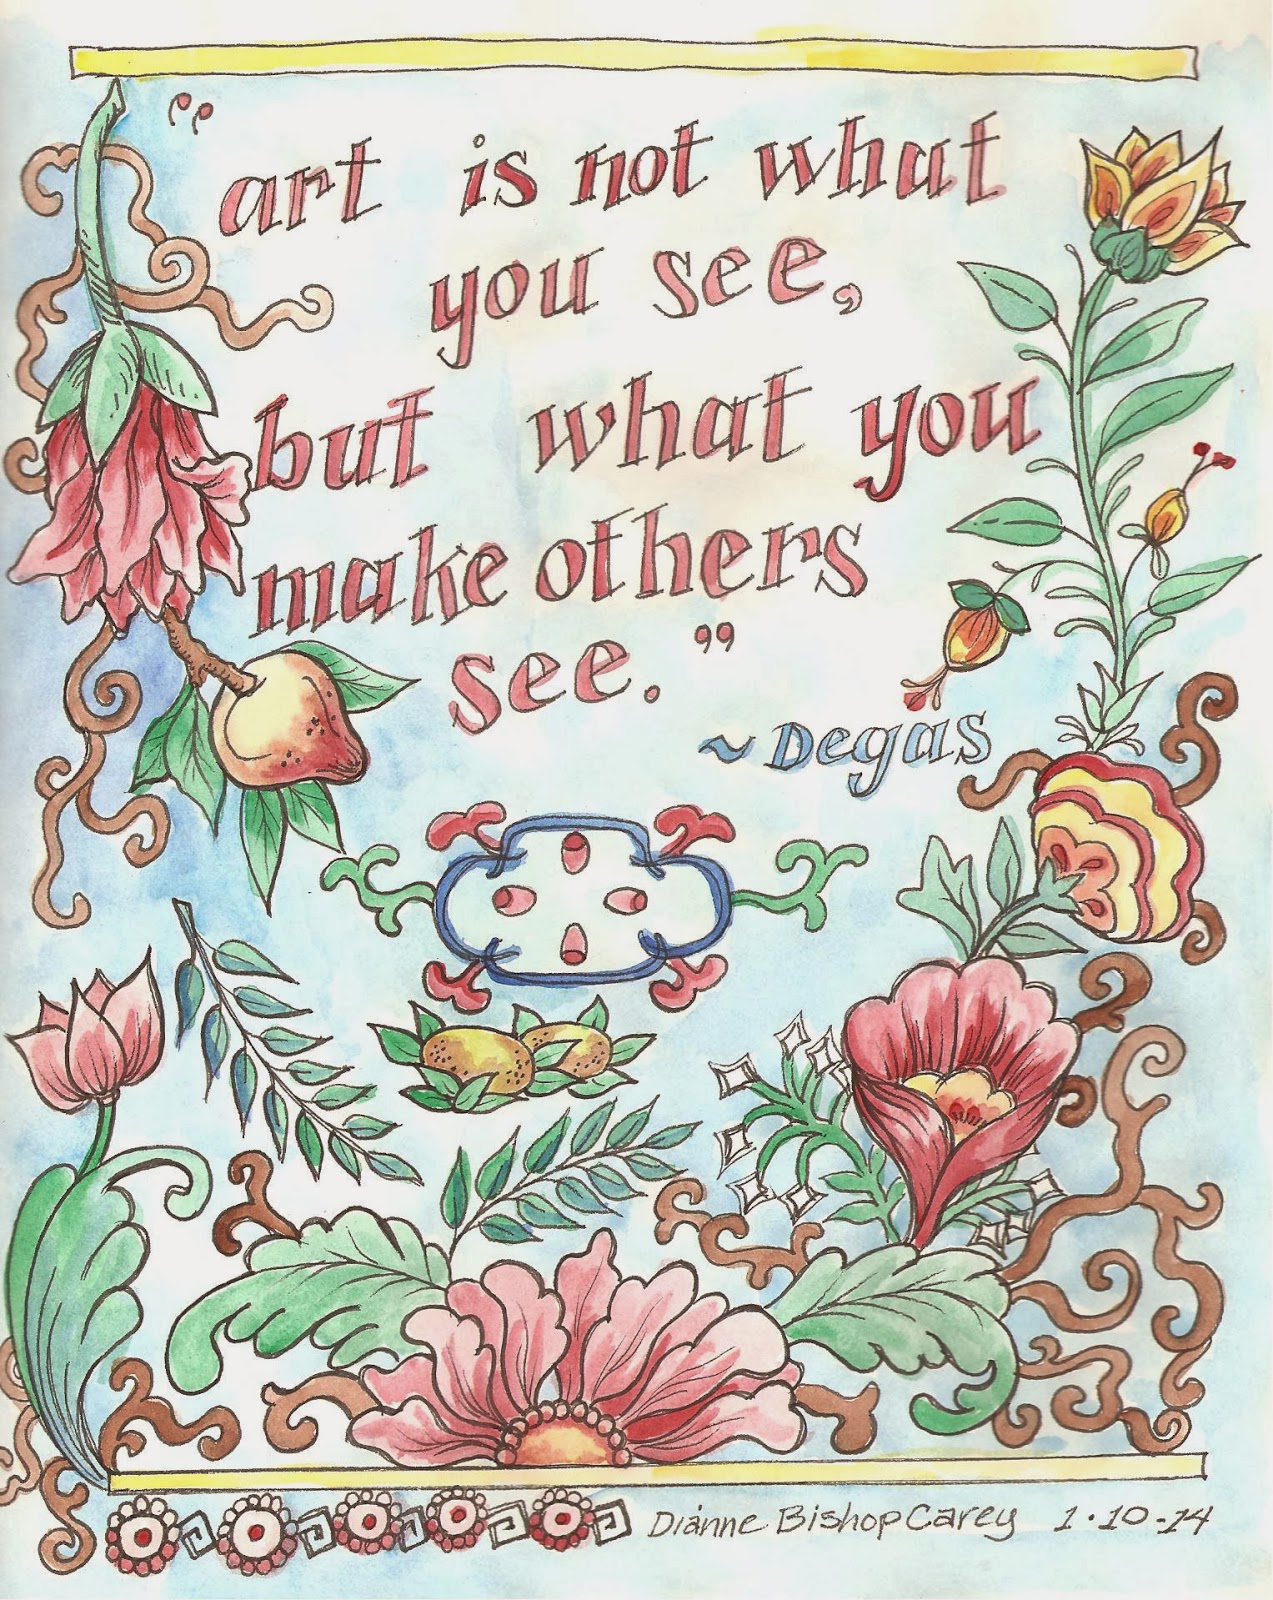 “art is not what
you see,
but what you
make others
see.”
~Degas
Dianne Bishop Carey 1·10-14